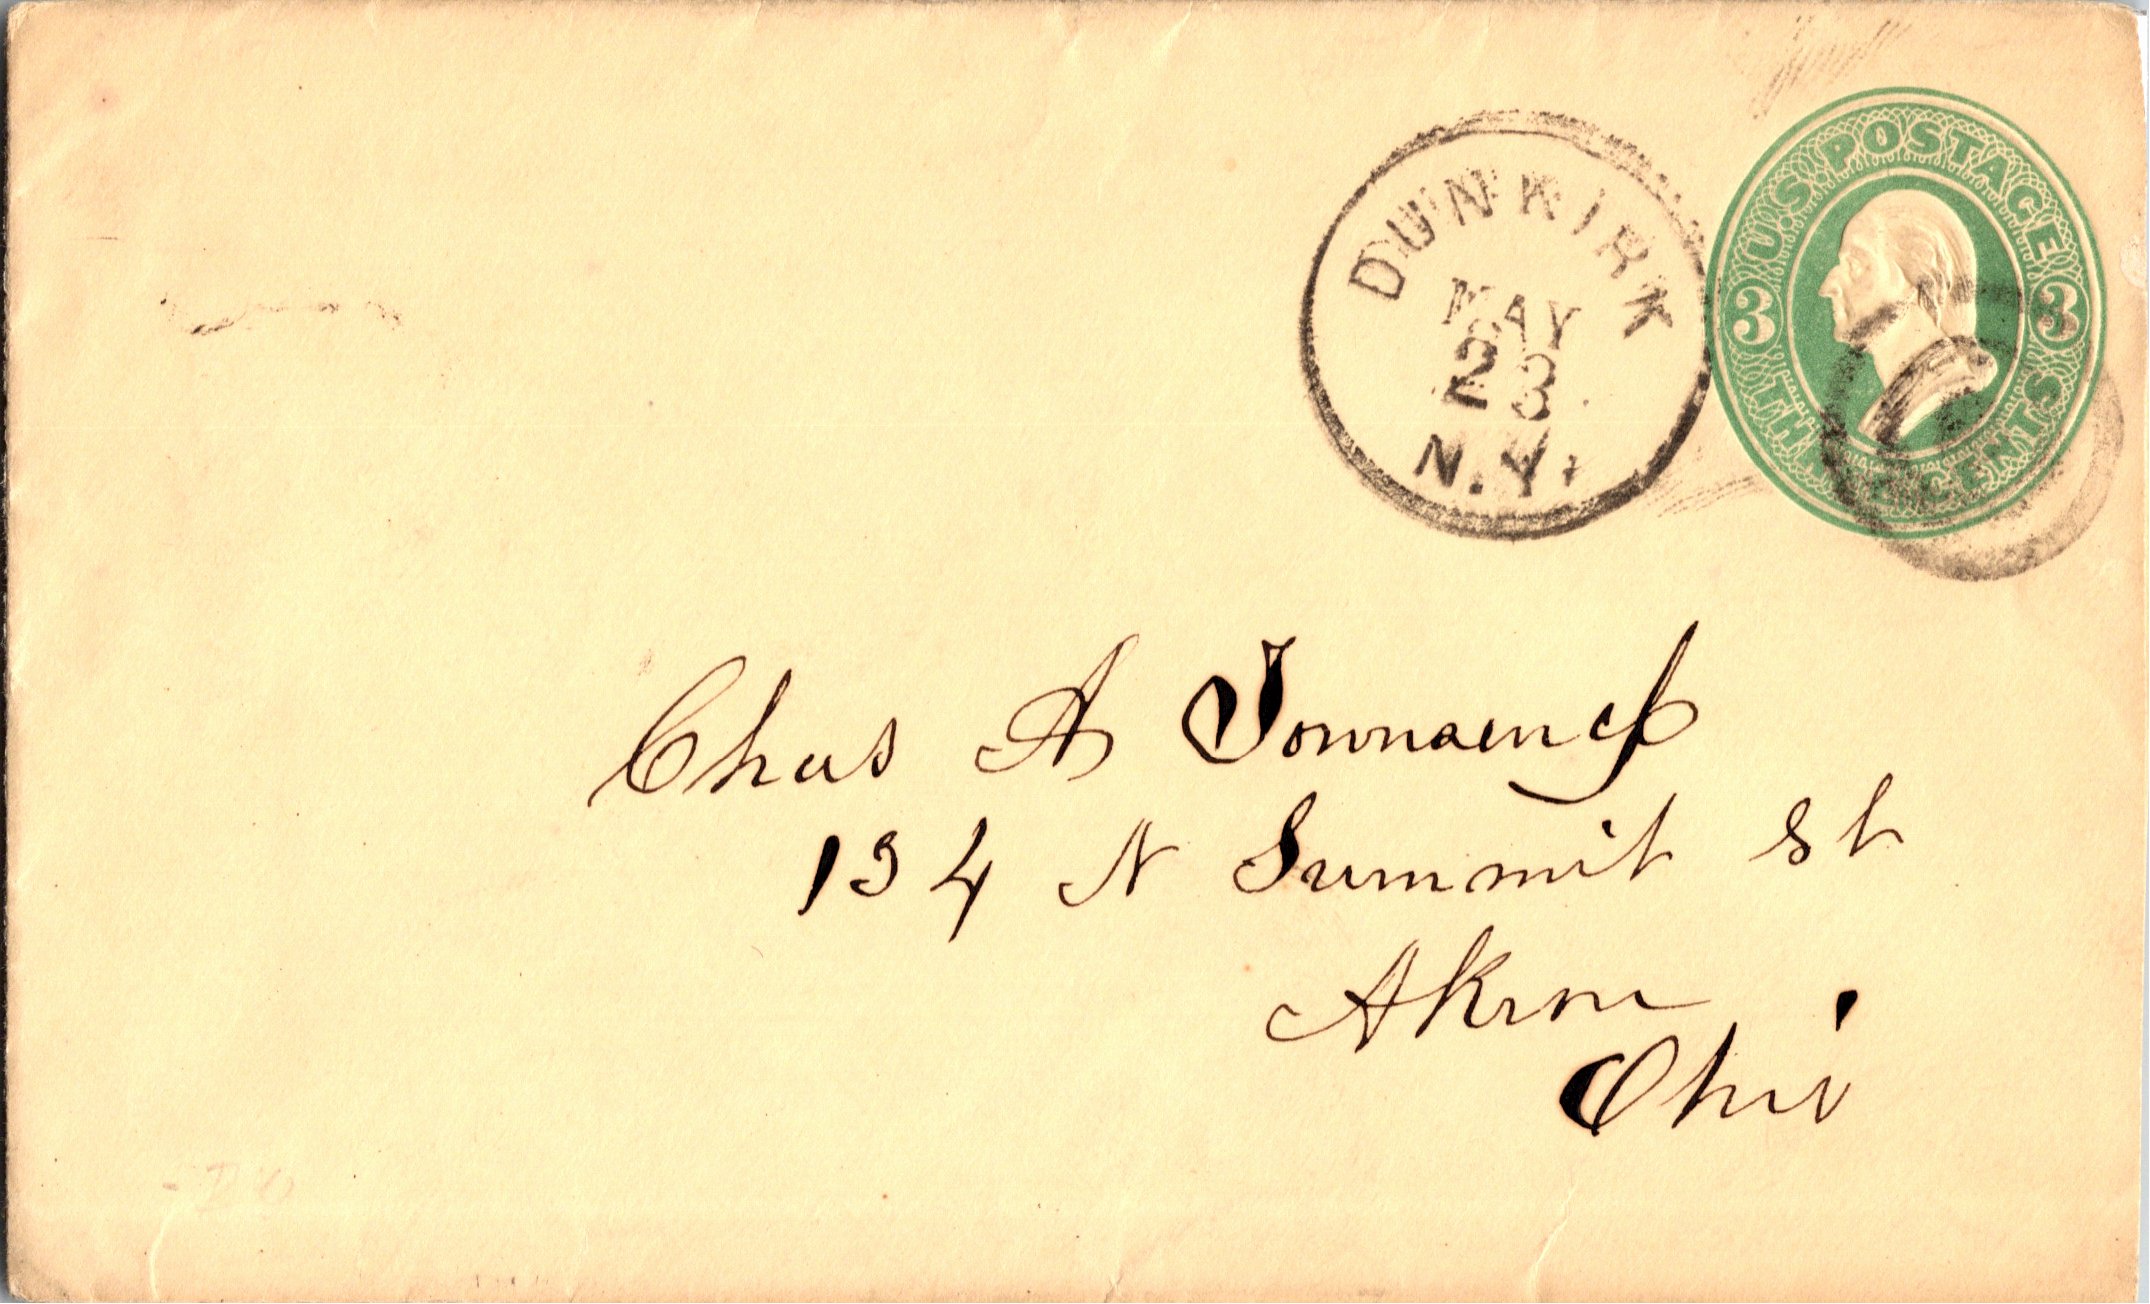 DUNKIRK
MAY
23
N.Y.
U.S. POSTAGE
3 3
THREE CENTS
Chas A Townsend
134 N Summit St
Akron
Ohio